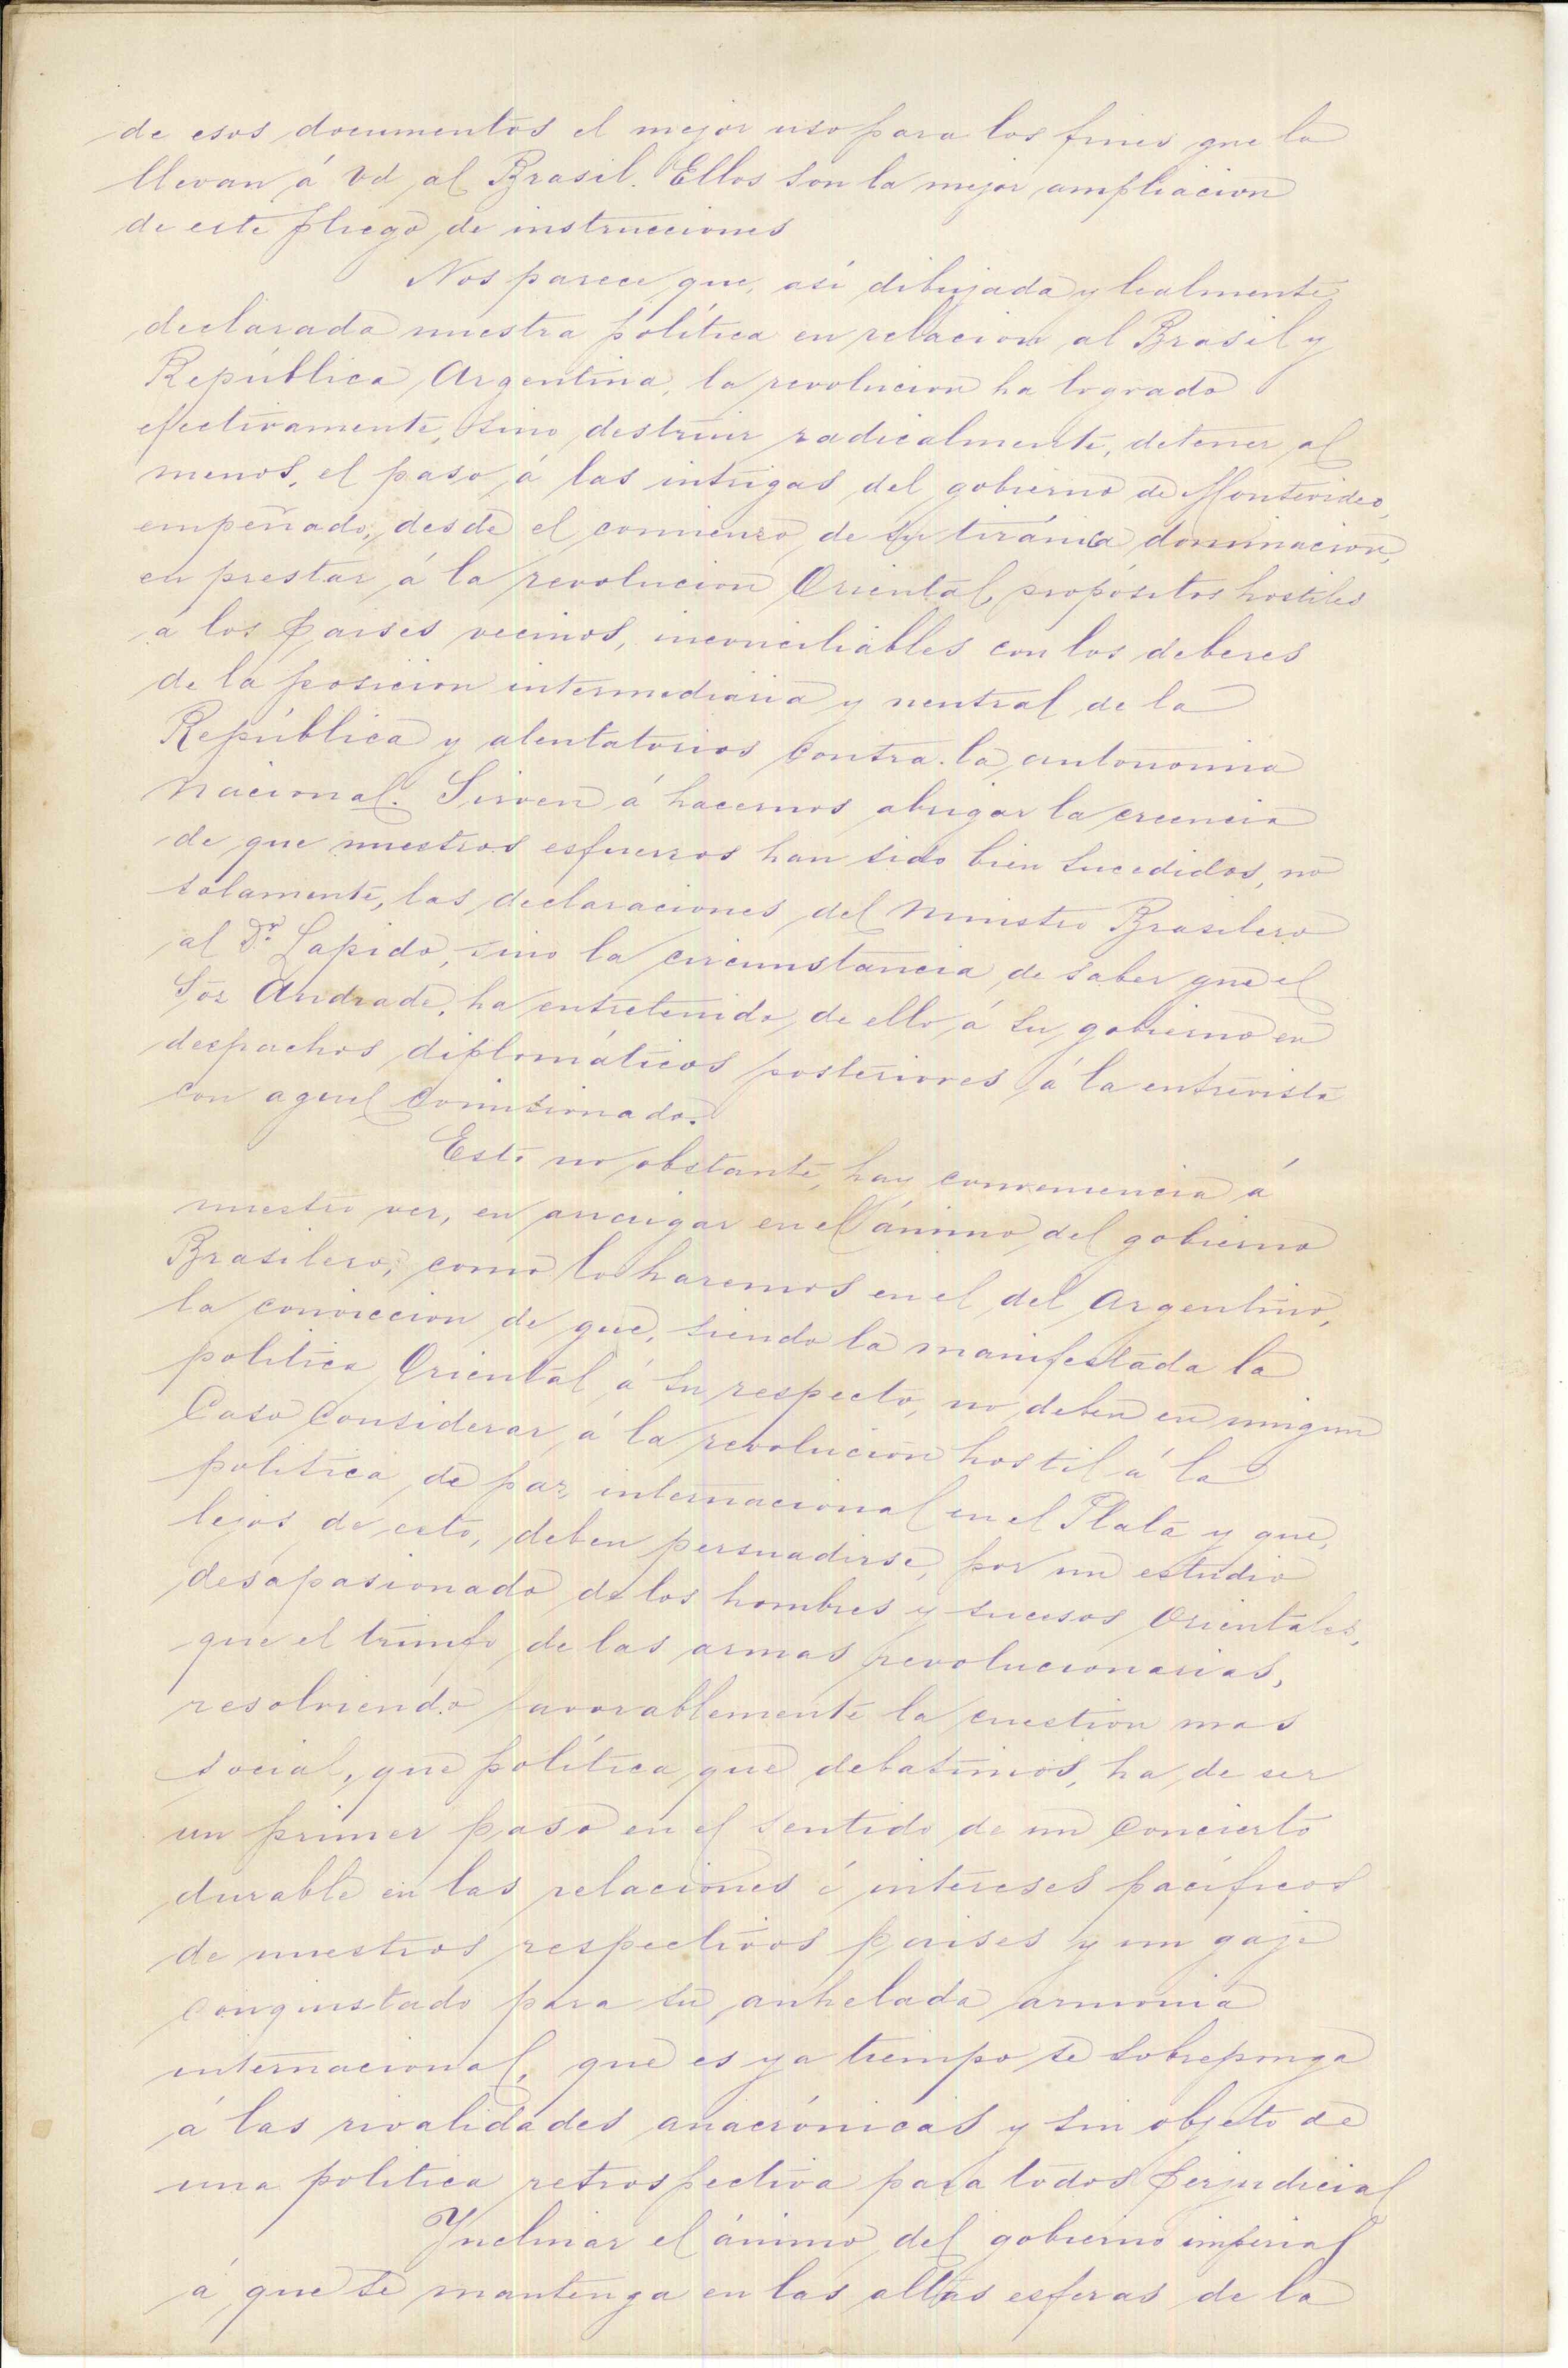 de esos documentos el mejor uso para los fines que lo
llevan á Vd al Brasil. Ellos son la mejor ampliacion
de este pliego de instrucciones
Nos parece que, así dibujada y lealmente
declarada nuestra política en relacion al Brasil y
República Argentina, la revolucion ha logrado
efectivamente, sino destruir radicalmente, detener al
menos, el paso á las intrigas del gobierno de Montevideo,
empeñado, desde el comienzo de su tiránica dominacion,
en prestar á la revolucion Oriental propósitos hostiles
a los paises vecinos, inconciliables con los deberes
de la posicion intermediaria y neutral de la
República y atentatorios contra la autonomia
nacional. Sirven á hacernos abrigar la creencia
de que nuestros esfuerzos han sido bien sucedidos, no
solamente, las declaraciones del Ministro Brasilero
al Dr. Lapido, sino la circunstancia de saber que el
Sor Andrade, ha entretenido de ello á su gobierno en
despachos diplomáticos posteriores á la entrevista
con aquel comisionado.
Esto no obstante, hay conveniencia á
nuestro ver, en arraigar en el ánimo del gobierno
Brasilero, como lo haremos en el del Argentino,
la conviccion de que, siendo la manifestada la
politica Oriental á su respecto, no deben en ningun
Caso considerar á la revolucion hostil á la
politica de paz internacional en el Plata y que,
lejos de esto, deben persuadirse, por un estudio
desapasionado de los hombres y sucesos Orientales,
que el triunfo de las armas revolucionarias,
resolviendo favorablemente la cuestion mas
social, que política que debatimos, ha de ser
un primer paso en el sentido de un concierto
durable en las relaciones é intereses pacíficos
de nuestros respectivos paises y un gaje
conquistado para su anhelada armonia
internacional, que es ya tiempo se sobreponga
á las rivalidades anacrónicas y sin objeto de
una politica retrospectiva para todos perjudicial
Ynclinar el ánimo del gobierno imperial
á que se mantenga en las altas esferas de la